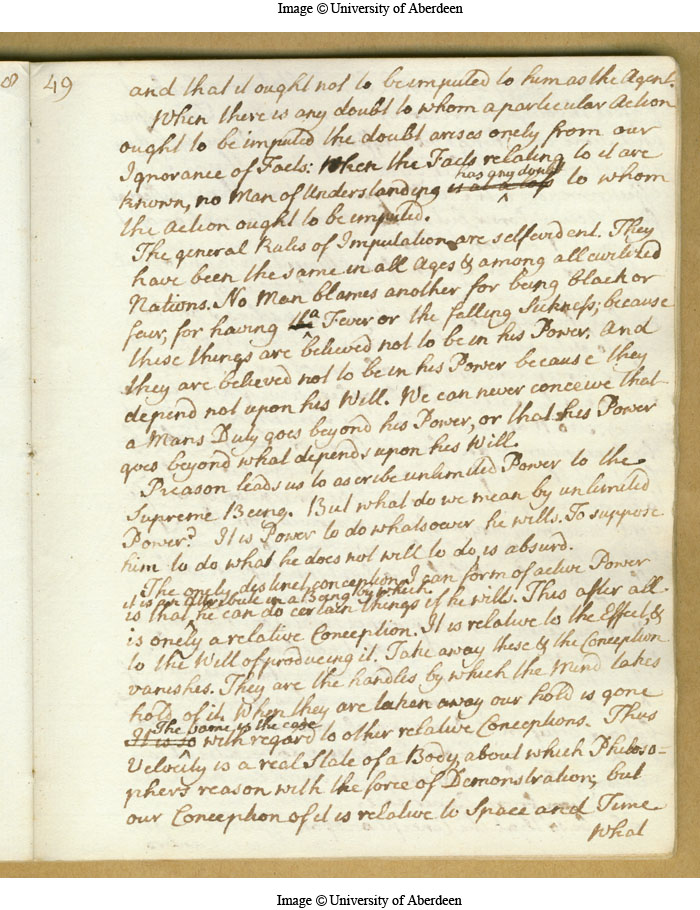 Image © University of Aberdeen
8
49
and that it ought not to be imputed to him as the Agent.
When there is any doubt to whom a particular Action
ought to be imputed the doubt arises onely from our
Ignorance of Facts: When the Facts relating to it are
has any doubt
known, no Man of Understanding is at a loss to whom
the Action ought to be imputed.
The general Rules of Imputation are selfevident. They
have been the same in all Ages & among all civilized
Nations. No Man blames another for being black or
fair, for having a Fever or the falling Sickness; because
these things are believed not to be in his Power. And
they are believed not to be in his Power because they
depend not upon his Will. We can never conceive that
a Mans Duty goes beyond his Power, or that his Power
goes beyond what depends upon his Will.
Reason leads us to ascribe unlimited Power to the
Supreme Being. But what do we mean by unlimited
Power? It is Power to do whatsoever he wills. To suppose
him to do what he does not will to do, is absurd.
The onely distinct conception I can form of active Power
it is an Attribute in a Being by which
is that he can do certain things if he will. This after all
is onely a relative Conception. It is relative to the Effect, &
to the Will of producing it. Take away these & the Conception
vanishes. They are the handles by which the Mind takes
hold of it. When they are taken away our hold is gone
The same is the case
It is so with regard to other relative Conceptions. Thus
Velocity is a real State of a Body, about which Philoso=
phers reason with the force of Demonstration; but
our Conception of it is relative to Space and Time
What
Image © University of Aberdeen